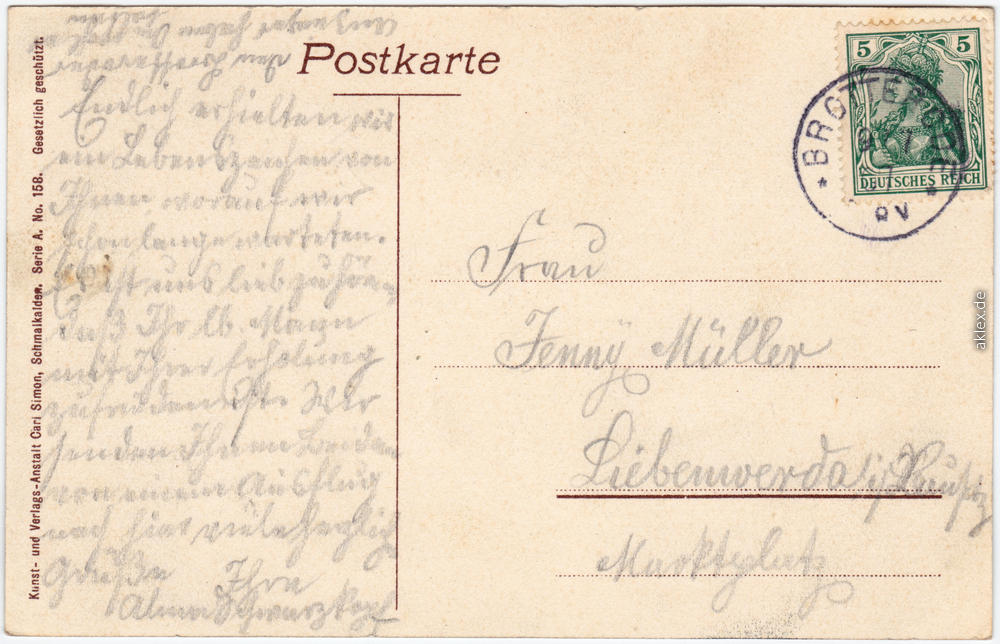 Postkarte
Kunst- und Verlags-Anstalt Carl Simon, Schmalkalden. Serie A. No. 158. Gesetzlich geschützt.
5 5
DEUTSCHES REICH
* BROTTERODE *
Endlich erhielten wir
ein Lebenszeichen von
Ihnen worauf wir
schon lange warteten.
Es ist uns lieb zu hören
daß Ihr lb. Mann
mit Ihrer Erholung
zufrieden ist. Wir
senden Ihnen Beiden
von einem Ausflug
nach hier viele herzlich
Grüße Ihre
Alma Schwarzkopf
Frau
Jenny Müller
Liebenwerda i/ Lausitz
Marktplatz
aklex.de